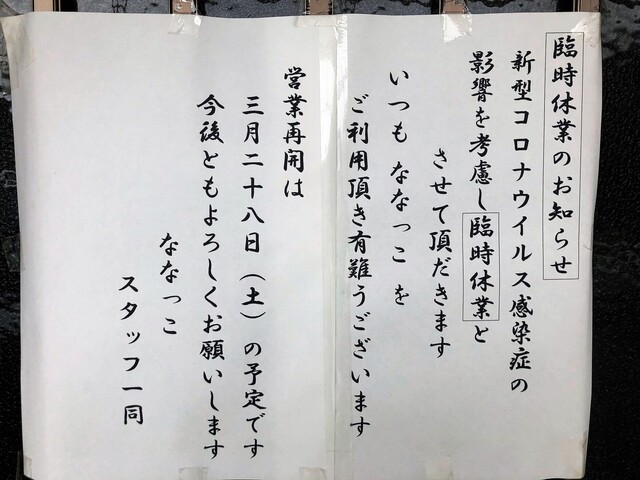 臨時休業のお知らせ
新型コロナウイルス感染症の
影響を考慮し臨時休業と
させて頂だきます
いつも ななっこ を
ご利用頂き有難うございます
営業再開は
三月二十八日（土）の予定です
今後ともよろしくお願いします
ななっこ
スタッフ一同